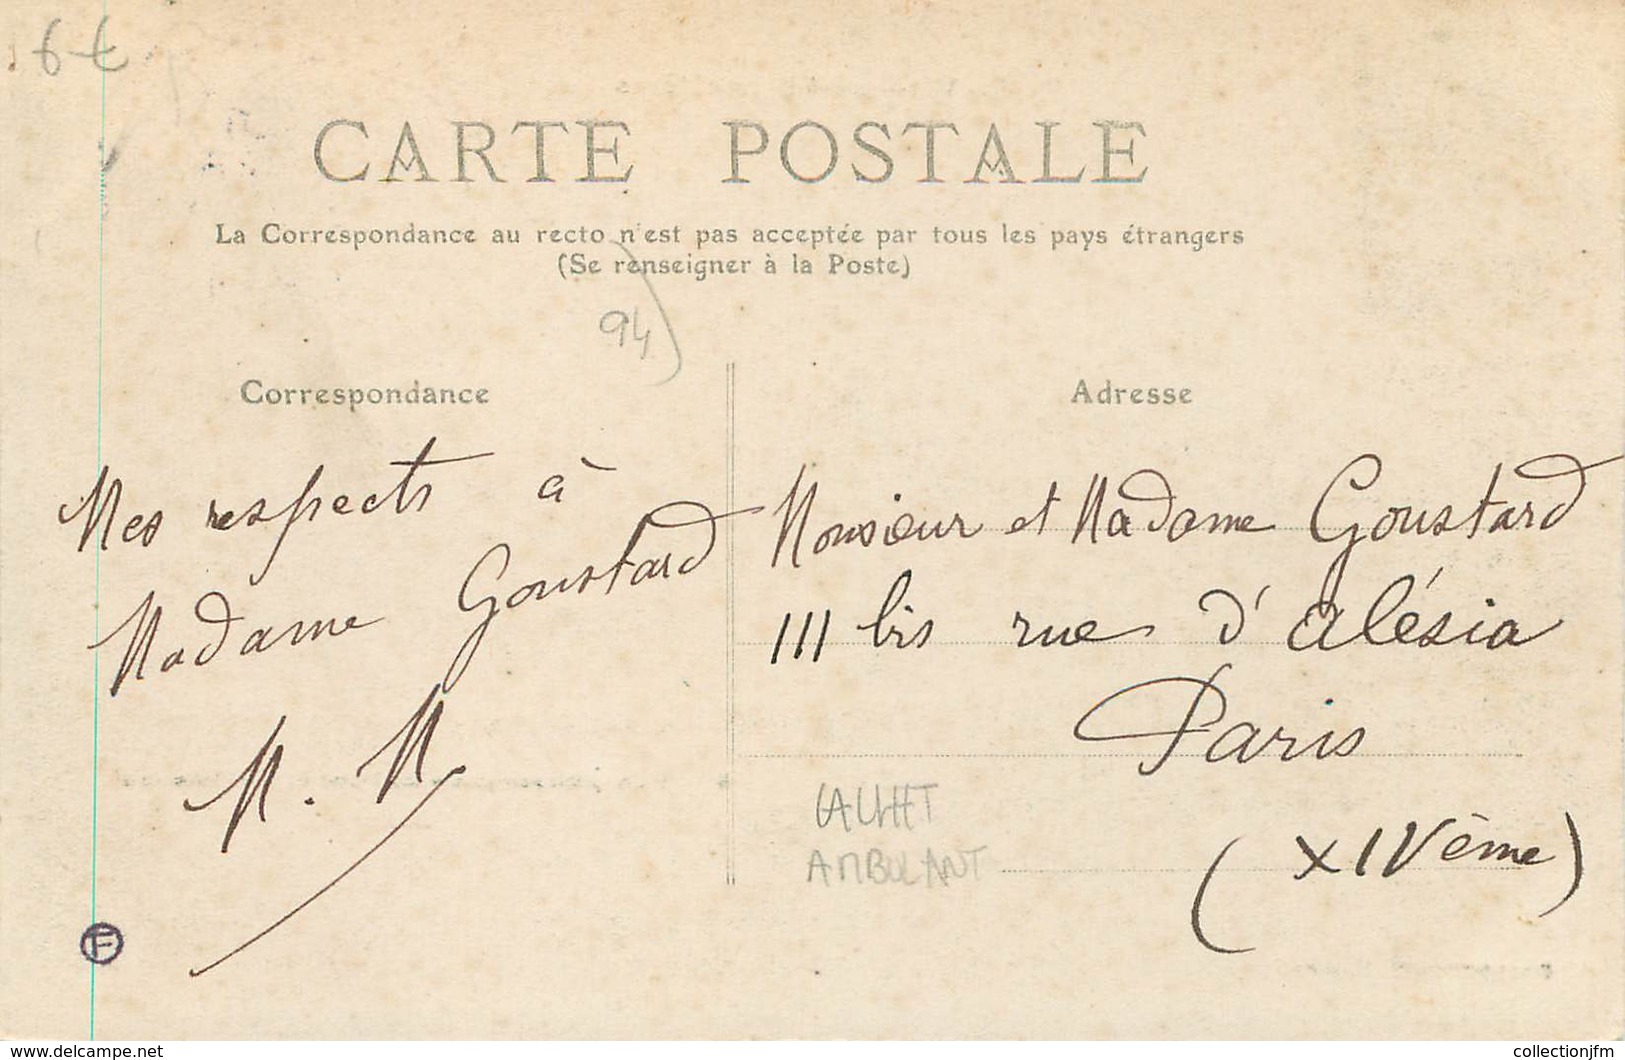 6€
CARTE POSTALE
La Correspondance au recto n'est pas acceptée par tous les pays étrangers
(Se renseigner à la Poste)
94
Correspondance
Mes respects à
Madame Goustard
M. M.
Adresse
Monsieur et Madame Goustard
111 bis rue d'alésia
Paris
(XIVème)
CACHET
AMBULANT
F
www.delcampe.net
collectionjfm